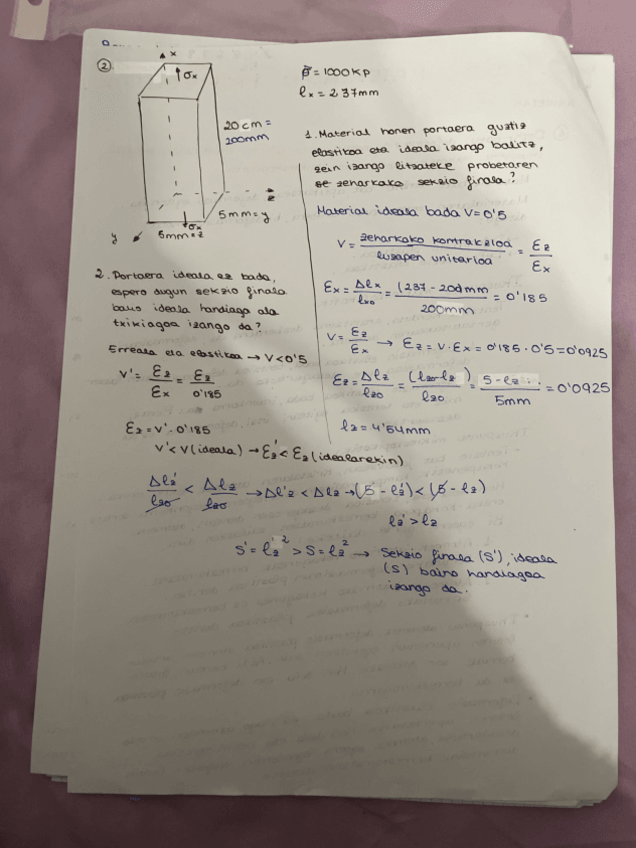 ②
x
σx
20cm =
200mm
z
5mm=y
σx
y
5mm=z
p̄ = 1000 kp
lx = 237mm
1. Material honen portaera guztiz
elastikoa eta ideala izango balitz,
zein izango litzateke probetaren
se zeharkako sekzio finala?
Material ideala bada V=0'5
V = zeharkako kontrakzioa / luzapen unitarioa = Ez / Ex
Ex = Δlx / lx0 = (237-200)mm / 200mm = 0'185
V = Ez / Ex → Ez = V·Ex = 0'185·0'5=0'0925
Ez = Δlz / lz0 = (lz0-lz) / lz0 = 5-lz / 5mm = 0'0925
lz = 4'54mm
2. Portaera ideala ez bada,
espero dugun sekzio finala
baino ideala handiago ala
txikiagoa izango da?
Erreala eta elastikoa → V<0'5
V' = Ez / Ex = Ez / 0'185
Ez = V'·0'185
V'< V(ideala) → Ez' < Ez (idealarekin)
Δlz' / lz0 < Δlz / lz0 → Δl'z < Δlz → (5 - lz') < (5 - lz)
lz' > lz
S' = lz'² > S = lz² → Sekzio finala (S'), ideala
(S) baino handiagoa
izango da.